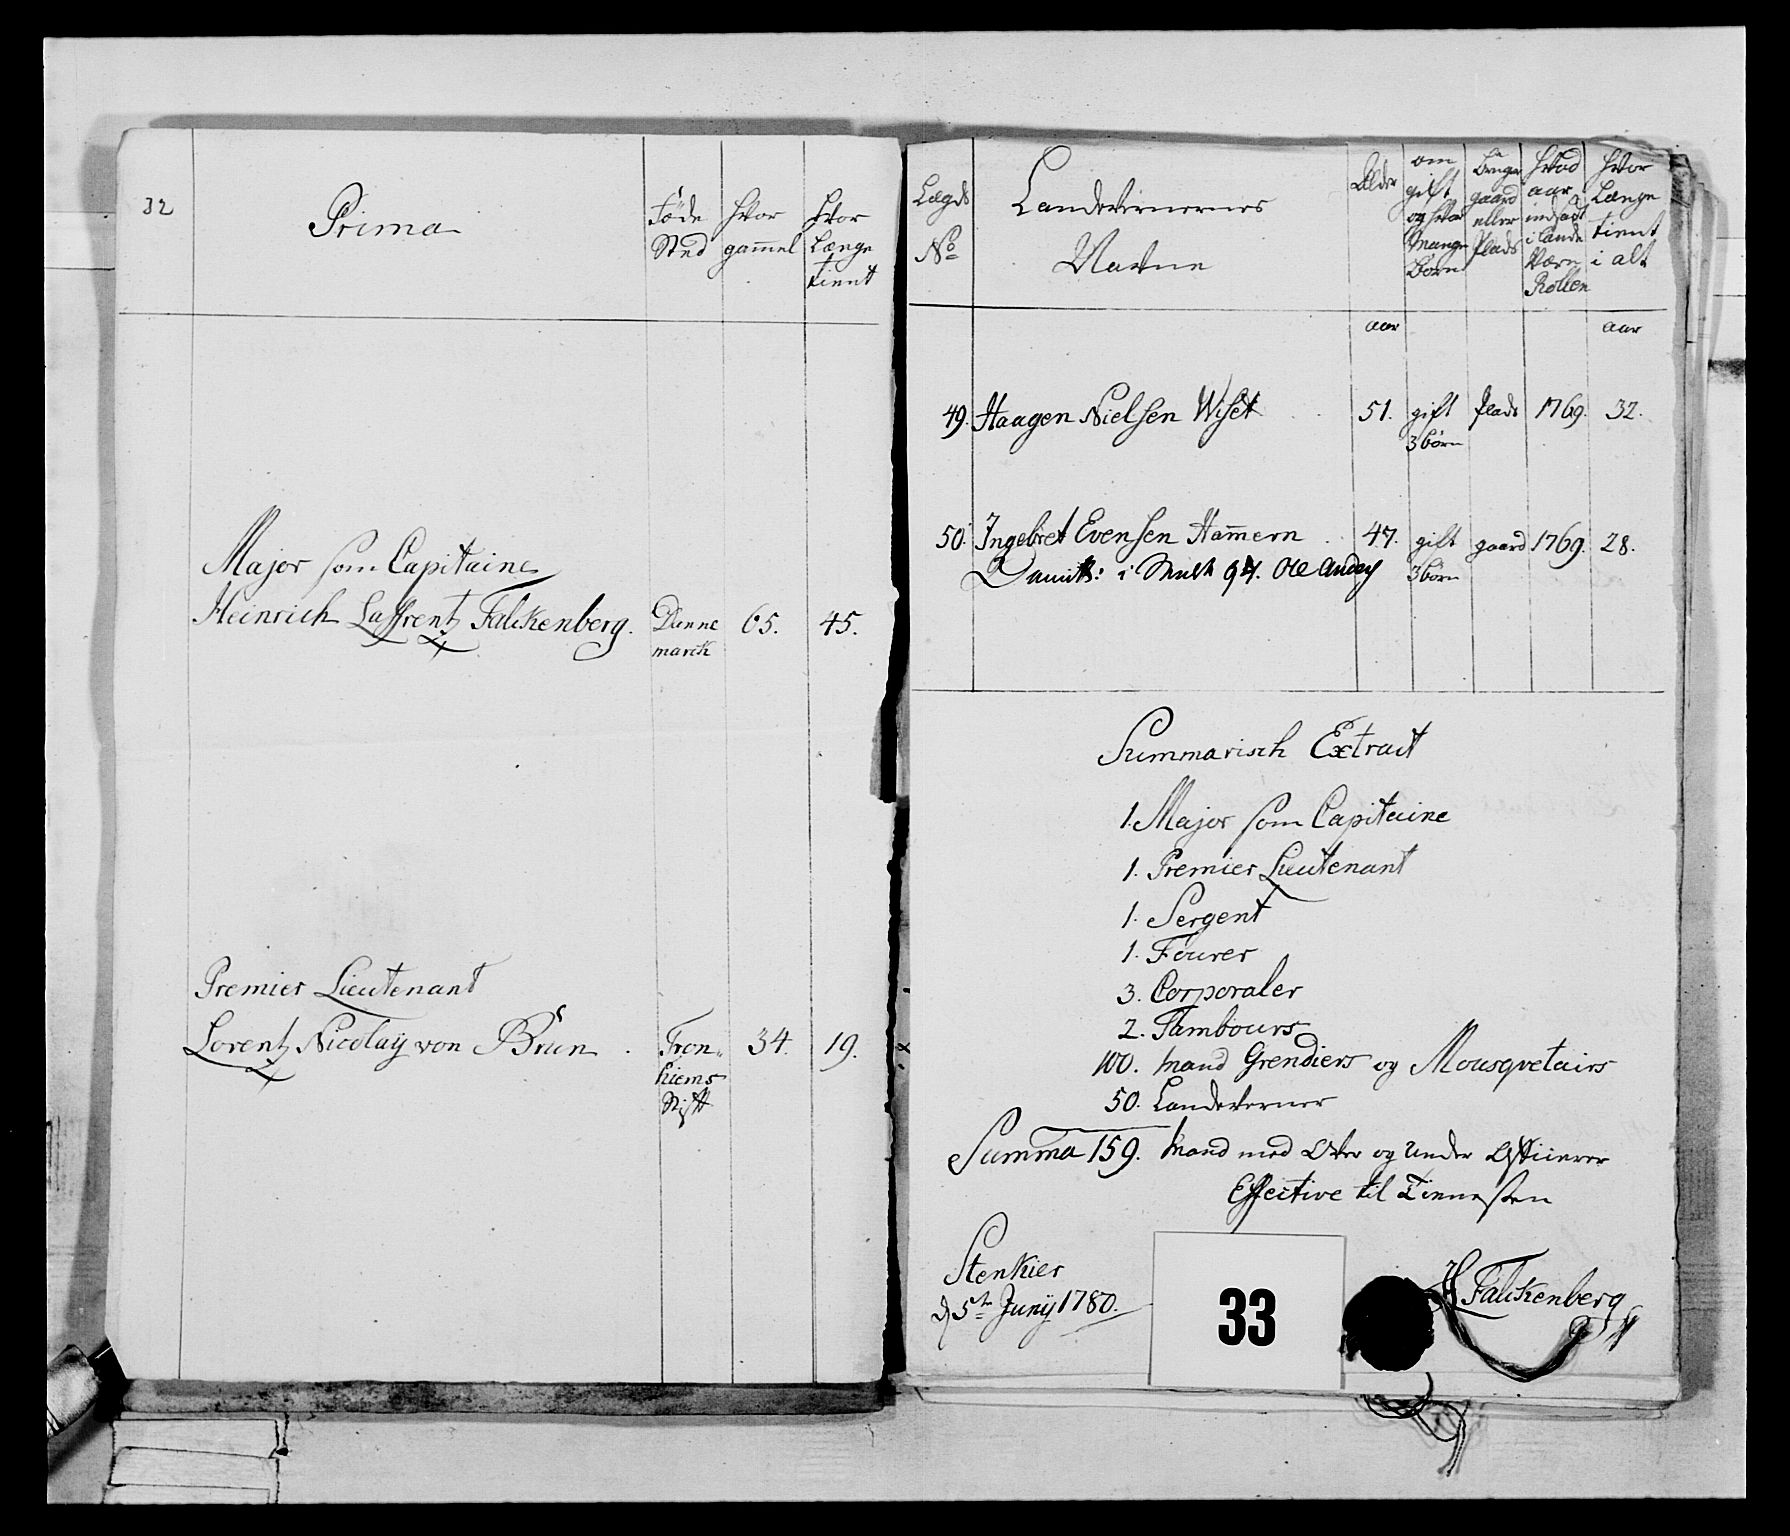 32
Prima
Föde Sted
Hvor gam̄el
Hvor Længe tient
Major som Capitaine
Heinrich Laffrentz Falckenberg. Dannemarck 65. 45.
Premier Lieutenant
Lorentz Nicolaÿ von Brun. Tronhiems Stift 34. 19.
Lægds No
Landevernernes Navne
Alder
om gift og hvor mange Börn
Bruger gaard eller Plads
Hvad aar indsadt i Lande Værn Rollen
Hvor Længe tient i alt
aar aar
49. Haagen Nielsen Wiset 51. gift 3 börn Plads 1769. 32.
50. Ingebret Evensen Ham̄ern 47. gift 3 börn gaard 1769. 28.
Summarisch Extract
1. Major som Capitaine
1. Premier Lieutenant
1. Sergent
1. Fourer
3. Corporaler
2. Tambours
100. Mand Grendiers og Mousqvetairs
50. Landeverner
Summa 159. Mand med Over og Under Officierer
Effective til Tienesten
Stenkier
d 5te Junÿ 1780.
33
H Falckenberg